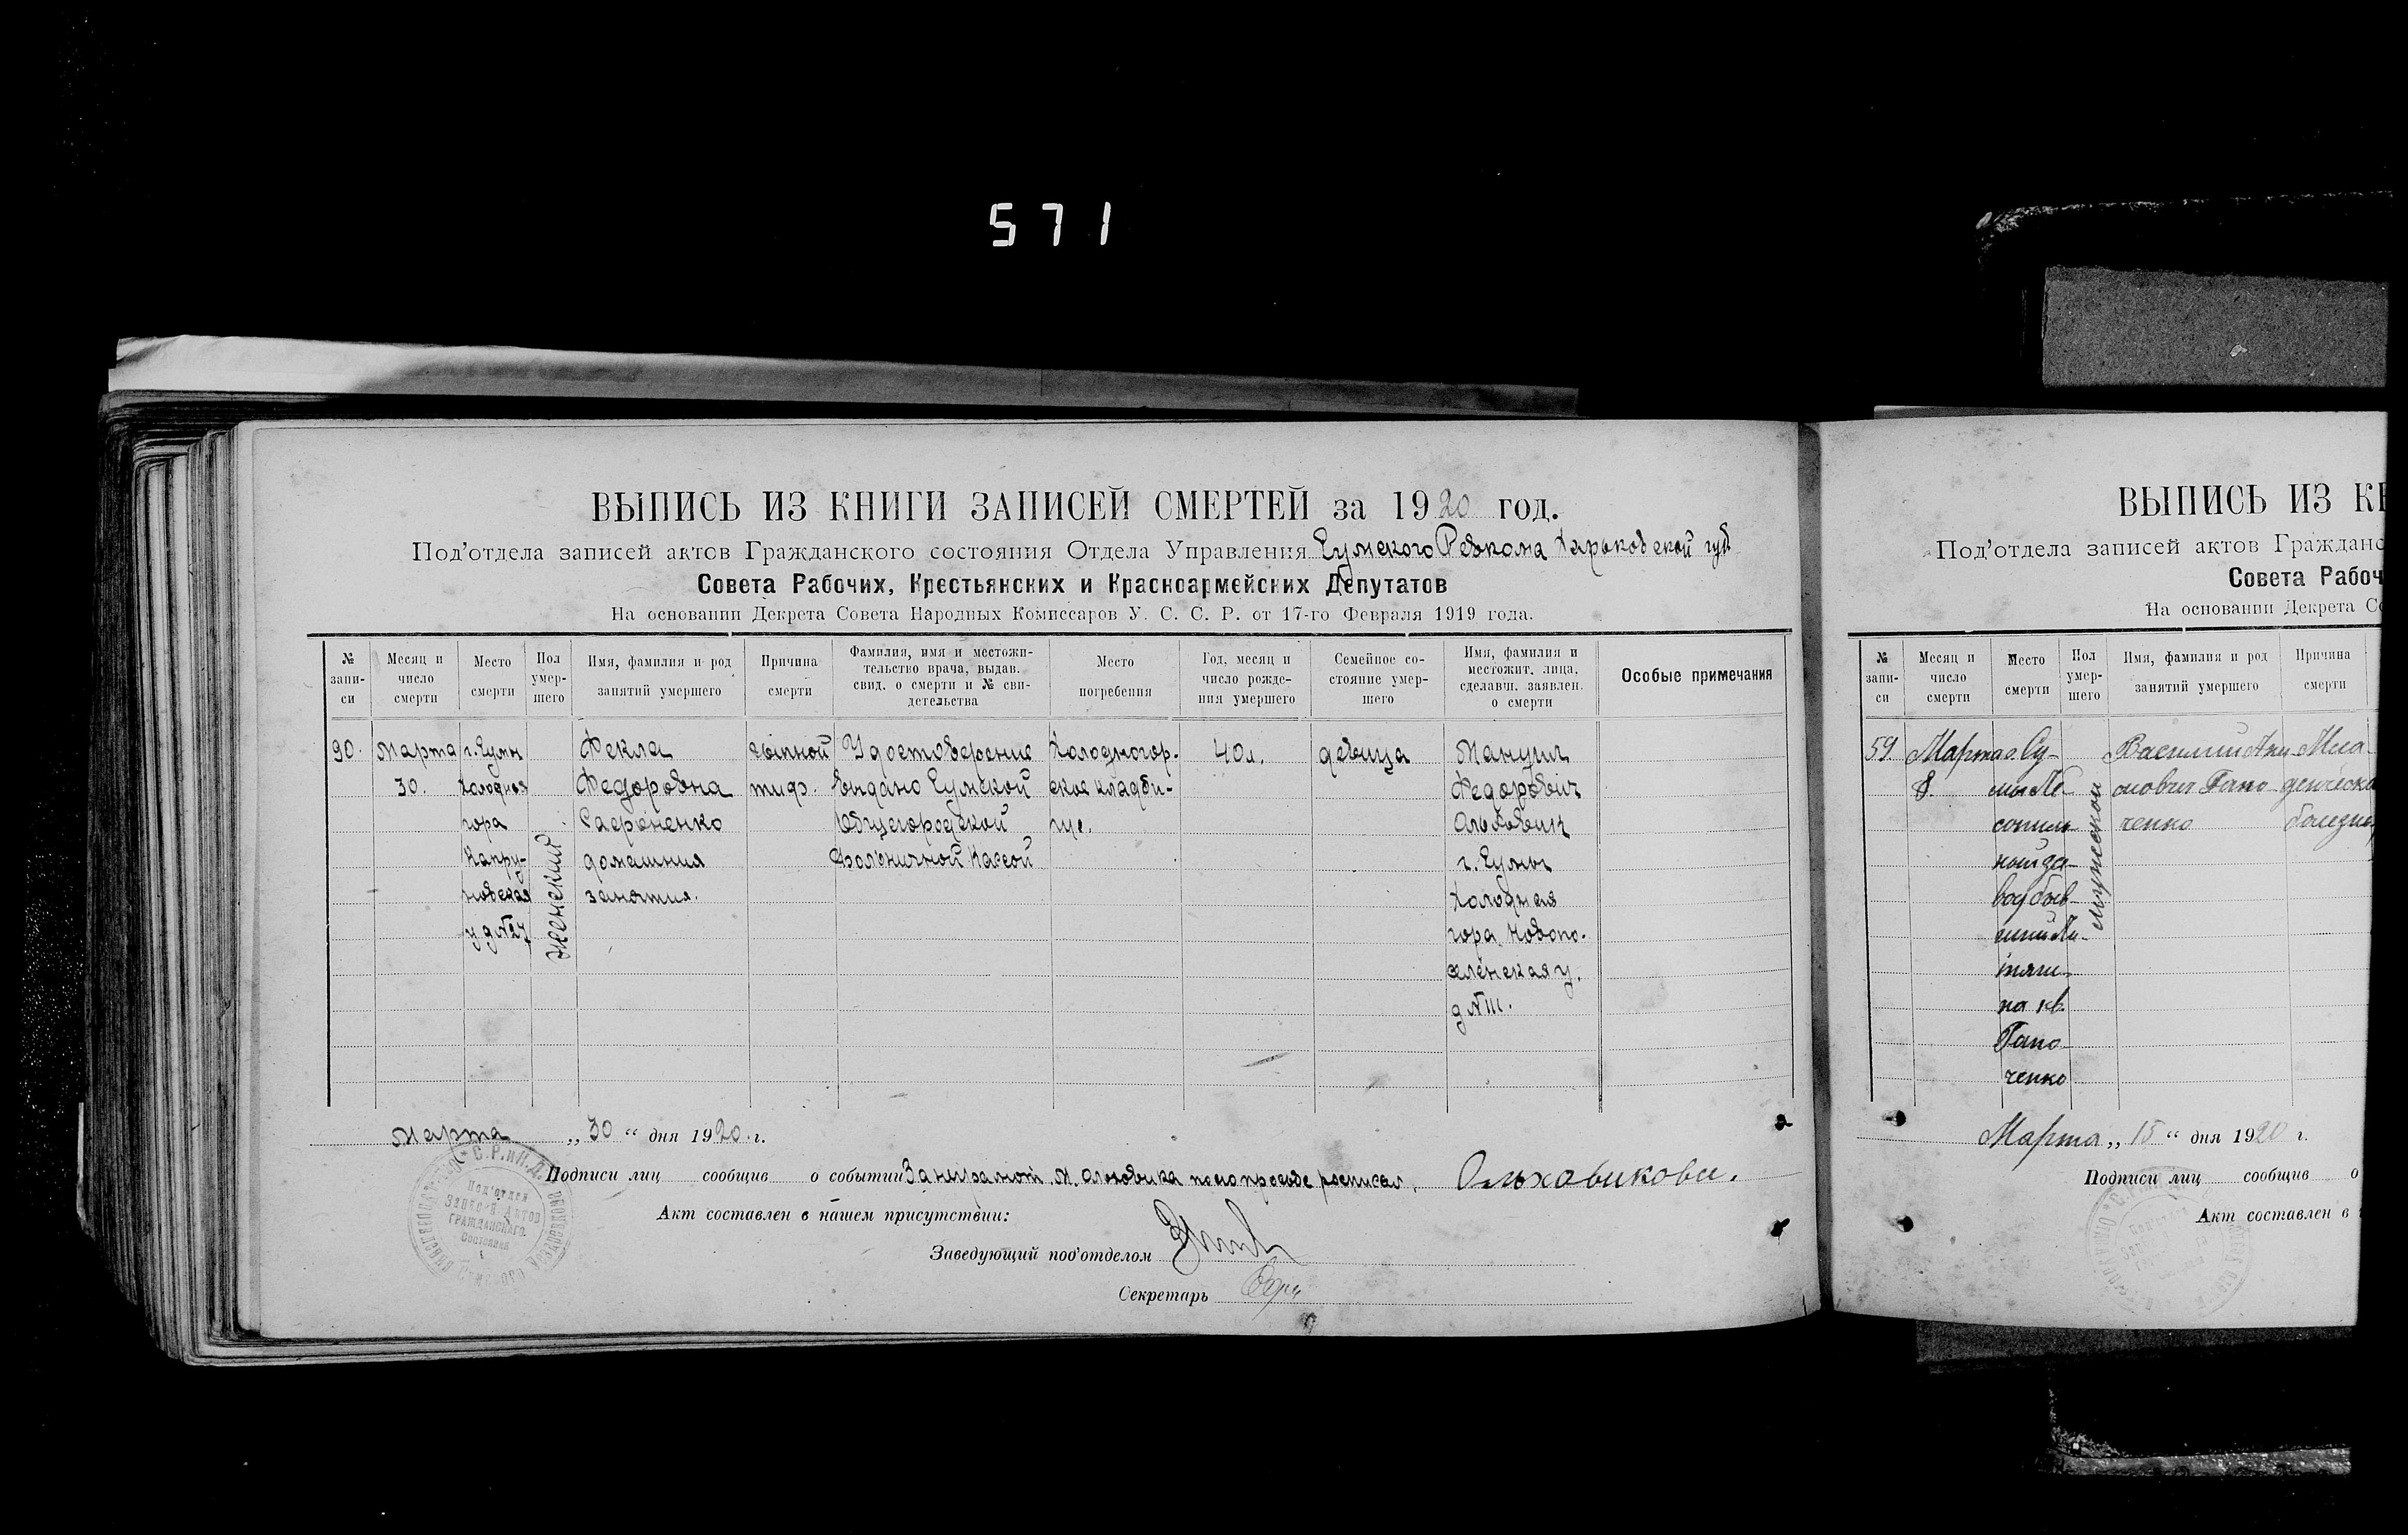 571
ВЫПИСЬ ИЗ КНИГИ ЗАПИСЕЙ СМЕРТЕЙ за 1920 год.
Под'отдела записей актов Гражданского состояния Отдела Управления Сумского Ревкома Харьковской губ
Совета Рабочих, Крестьянских и Красноармейских Депутатов
На основании Декрета Совета Народных Комиссаров У. С. С. Р. от 17-го Февраля 1919 года.
№ запи-си
Месяц и число смерти
Место смерти
Пол умер-шего
Имя, фамилия и род занятий умершего
Причина смерти
Фамилия, имя и местожи-тельство врача, выдав. свид. о смерти и № сви-детельства
Место погребения
Год, месяц и число рожде-ния умершего
Семейное со-стояние умер-шего
Имя, фамилия и местожит. лица, сделавш. заявлен. о смерти
Особые примечания
90.
Марта
30.
г. Сумы
Холодная
гора
новская
женский
Фекла
Федоровна
Сафоненко
домашния
занятия.
сыпной
тиф.
Удостоверение
выдано Сумской
Общегородской
Больничной Кассой
Холодногор.
ское кладби-
ще.
40 л.
девица
Федорович
г. Сумы
Холодная
гора Новопо-
селенская у.
Марта „ 30 “ дня 1920 г.
Подписи лиц сообщив о событии За неграмот. М. по его просьбе росписал,
Акт составлен в нашем присутствии:
Заведующий под'отделом
Секретарь
Под'отдел
Записей Актов
Гражданского
Состояния
ВЫПИСЬ ИЗ К
Под'отдела записей актов Гражданс
Совета Рабоч
На основании Декрета С
№ запи-си
Месяц и число смерти
Место смерти
Пол умер-шего
Имя, фамилия и род занятий умершего
Причина смерти
59
Марта
8.
г. Су-
мы
на кв.
Гапо
ченко
мужской
Василий
Гапо
ченко
болезн
Марта „ 15 “ дня 1920 г.
Подписи лиц сообщив о
Акт составлен в